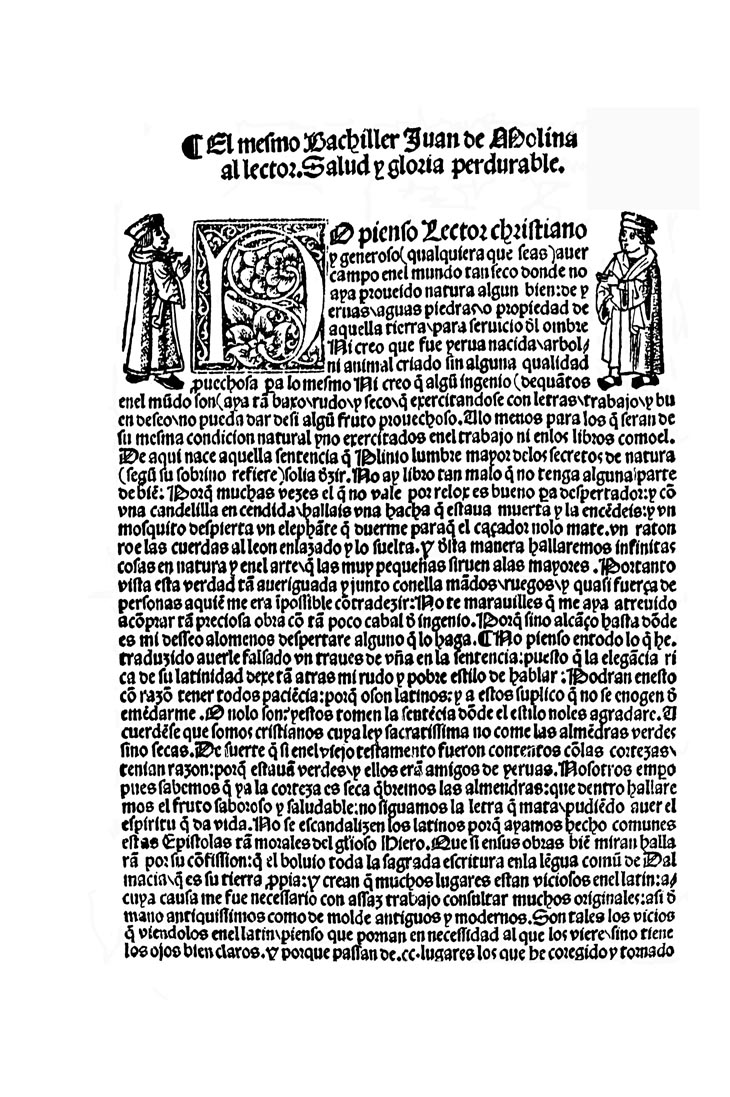 ¶ El mesmo Bachiller Juan de Molina
al lector. Salud y gloria perdurable.
NO pienso Lector christiano
y generoso (qualquiera que seas) auer
campo enel mundo tan seco donde no
aya proueido natura algun bien: de y
eruas\aguas piedras\o propiedad de
aquella tierra\para seruicio dl ombre
Ni creo que fue yerua nacida\arbol/
ni animal criado sin alguna qualidad
puechosa pa lo mesmo Ni creo q̃ algũ ingenio (dequãtos
enel mũdo son (aya tã baxo\rudo\y seco\q̃ exercitandose con letras\trabajo\y bu
en deseo\no pueda dar desi algũ fruto prouechoso. Alo menos para los q̃ seran de
su mesma condicion natural yno exercitados enel trabajo ni enlos libros comoel.
De aqui nace aquella sentencia q̃ Plinio lumbre mayor delos secretos de natura
(segũ su sobrino refiere) solia dzir. No ay libro tan malo q̃ no tenga alguna parte
de biẽ: Porq̃ muchas vezes el q̃ no vale por relox es bueno pa despertador: y cõ
vna candelilla en cendida\hallais vna hacha q̃ estaua muerta y la encẽdeis: y vn
mosquito despierta vn elephãte q̃ duerme paraq̃ el caçador nolo mate. vn raton
roe las cuerdas al leon enlazado y lo suelta. Y dsta manera hallaremos infinitas
cosas en natura y enel arte\q̃ las muy pequeñas siruen alas mayores. Portanto
vista esta verdad tã aueriguada y junto conella mãdos\ruegos\y quasi fuerça de
personas aquiẽ me era ĩpossible cõtradezir: No te marauilles q̃ me aya atreuido
acõprar tã preciosa obra cõ tã poco cabal d ingenio. Porq̃ sino alcãço hasta dõde
es mi desseo alomenos despertare alguno q̃ lo haga. ¶ No pienso entodo lo q̃ he
traduzido auerle falsado vn traues de vña en la sentencia: puesto q̃ la elegãcia ri
ca de su latinidad dexe tã atras mi rudo y pobre estilo de hablar: Podran enesto
cõ razõ tener todos paciẽcia: porq̃ oson latinos: y a estos suplico q̃ no se enogen d
emẽdarme. O nolo son: yestos tomen la sentẽcia dõde el estilo noles agradare. A
cuerdẽse que somos cristianos cuya ley sacratissima no come las almẽdras verdes
sino secas. De suerte q̃ si enel viejo testamento fueron contentos cõlas cortezas\
tenian razon: porq̃ estauã verdes\y ellos erã amigos de yeruas. Nosotros empo
pues sabemos q̃ ya la corteza es seca q̃bremos las almendras: que dentro hallare
mos el fruto saboroso y saludable: no siguamos la letra q̃ mata\pudiẽdo auer el
espiritu q̃ da vida. No se escandalizen los latinos porq̃ ayamos hecho comunes
estas Epistolas tã morales del glioso Hiero. Que si ensus obras biẽ miran halla
rã por su cõfission: q̃ el boluio toda la sagrada escritura enla lẽgua comũ de Dal
macia\q̃ es su tierra ppia: y crean q̃ muchos lugares estan viciosos enel latin: a/
cuya causa me fue necessario con assaz trabajo consultar muchos originales: asi d
mano antiquissimos como de molde antiguos y modernos. Son tales los vicios
q̃ viendolos enel latin\pienso que pornan en necessidad al que los viere\sino tiene
los ojos bien claros. Y porque passan de .cc. lugares los que he coregido y tornado